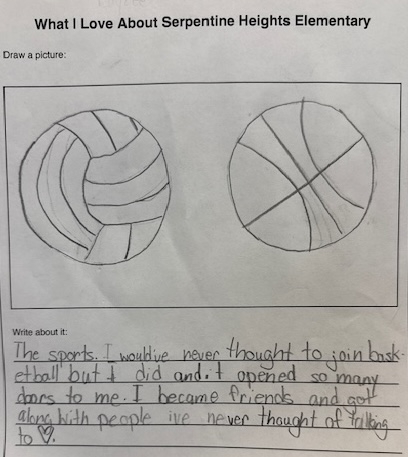 What I Love About Serpentine Heights Elementary
Draw a picture:
Write about it:
The sports. I would've never thought to join bask-
etball but I did and it opened so many
doors to me. I became friends and got
along with people ive never thought of talking
to ♡.